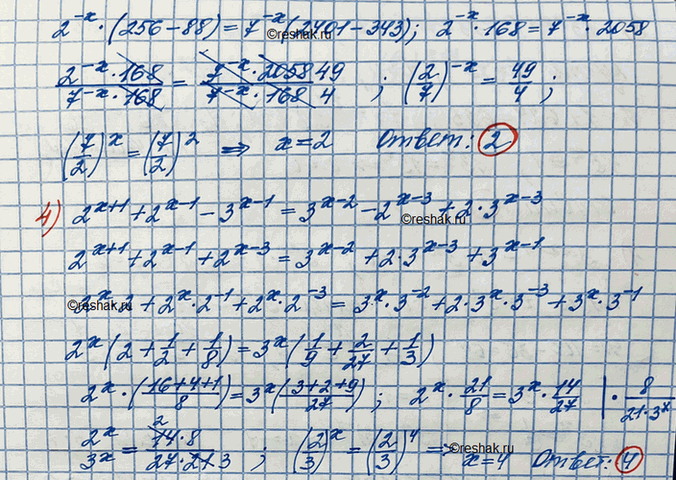 2^{-x}·(256−88)=7^{-x}(2401−343); 2^{-x}·168=7^{-x}·2058
©reshak.ru
\frac{2^{-x}·168}{7^{-x}·168} = \frac{7^{-x}·2058 49}{7^{-x}·168 4} ; (\frac{2}{7})^{-x} = \frac{49}{4};
(\frac{7}{2})^{x} = (\frac{7}{2})^{2} ⇒ x=2 Ответ: 2
4) 2^{x+1}+2^{x-1}−3^{x-1}=3^{x-2}−2^{x-3}+2·3^{x-3}
©reshak.ru
2^{x+1}+2^{x-1}+2^{x-3}=3^{x-2}+2·3^{x-3}+3^{x-1}
©reshak.ru
2^{x}·2+2^{x}·2^{-1}+2^{x}·2^{-3}=3^{x}·3^{-2}+2·3^{x}·3^{-3}+3^{x}·3^{-1}
2^{x}(2+\frac{1}{2}+\frac{1}{8})=3^{x}(\frac{1}{9}+\frac{2}{27}+\frac{1}{3})
2^{x}·(\frac{16+4+1}{8})=3^{x}(\frac{3+2+9}{27}); 2^{x}·\frac{21}{8}=3^{x}·\frac{14}{27} |·\frac{8}{21·3^{x}}
\frac{2^{x}}{3^{x}}=\frac{2 14·8}{27·21·3} ; (\frac{2}{3})^{x}=(\frac{2}{3})^{4} ⇒ x=4 Ответ: 4
©reshak.ru